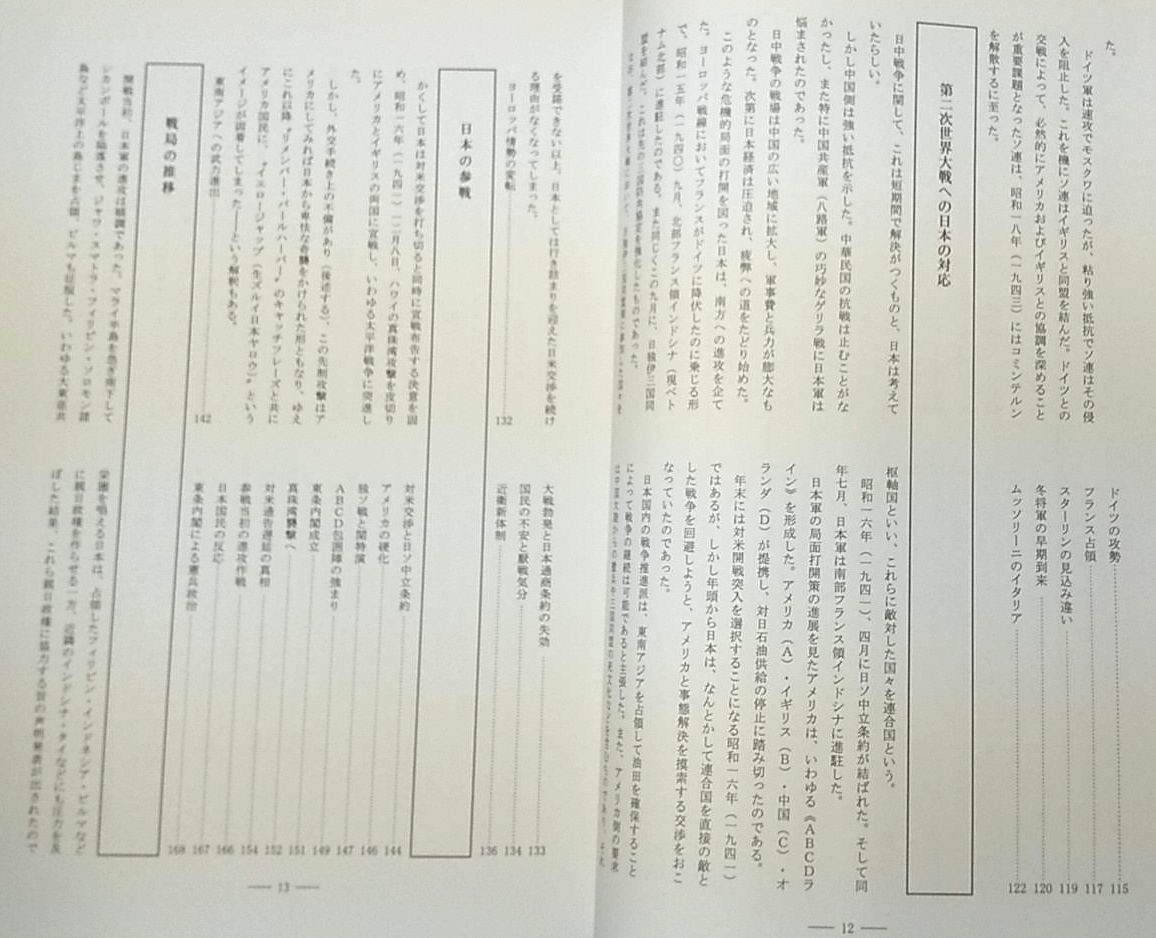 た。
ドイツ軍は速攻でモスクワに迫ったが、粘り強い抵抗でソ連はその侵
入を阻止した。これを機にソ連はイギリスと同盟を結んだ。ドイツとの
交戦によって、必然的にアメリカおよびイギリスとの協調を深めること
が重要課題となったソ連は、昭和一八年（一九四三）にはコミンテルン
を解散するに至った。
ドイツの攻勢 115
フランス占領 117
スターリンの見込み違い 119
冬将軍の早期到来 120
ムッソリーニのイタリア 122
第二次世界大戦への日本の対応
日中戦争に関して、これは短期間で解決がつくものと、日本は考えて
いたらしい。
しかし中国側は強い抵抗を示した。中華民国の抗戦は止むことがな
かったし、また特に中国共産軍（八路軍）の巧妙なゲリラ戦に日本軍は
悩まされたのであった。
日中戦争の戦場は中国の広い地域に拡大し、軍事費と兵力が膨大なも
のとなった。次第に日本経済は圧迫され、疲弊への道をたどり始めた。
このような危機的局面の打開を図った日本は、南方への進攻を企て
た。ヨーロッパ戦線においてフランスがドイツに降伏したのに乗じる形
で、昭和一五年（一九四〇）九月、北部フランス領インドシナ（現ベト
ナム北部）に進駐したのである。また同じくこの九月に、日独伊三国同
盟を結んだ。これは先の三国防共協定を強化したものであった。
枢軸国といい、これらに敵対した国々を連合国という。
昭和一六年（一九四一）、四月に日ソ中立条約が結ばれた。そして同
年七月、日本軍は南部フランス領インドシナに進駐した。
日本軍の局面打開策の進展を見たアメリカは、いわゆる《ABCDラ
イン》を形成した。アメリカ（A）・イギリス（B）・中国（C）・オ
ランダ（D）が提携し、対日石油供給の停止に踏み切ったのである。
年末には対米開戦突入を選択することになる昭和一六年（一九四一）
ではあるが、しかし年頭から日本は、なんとかして連合国を直接の敵と
した戦争を回避しようと、アメリカと事態解決を摸索する交渉をおこ
なっていたのであった。
日本国内の戦争推進派は、東南アジアを占領して油田を確保すること
によって戦争の継続は可能であると主張した。また、アメリカ側の要求
12
を受諾できない以上、日本としては行き詰まりを迎えた日米交渉を続け
る理由がなくなってしまった。
ヨーロッパ情勢の変転 132
大戦勃発と日本通商条約の失効 133
国民の不安と厭戦気分 134
近衛新体制 136
日本の参戦
かくして日本は対米交渉を打ち切ると同時に宣戦布告する決意を固
め、昭和一六年（一九四一）一二月八日、ハワイの真珠湾攻撃を皮切り
にアメリカとイギリスの両国に宣戦し、いわゆる太平洋戦争に突進し
た。
しかし、外交手続き上の不備があり（後述する）、この先制攻撃はア
メリカにしてみれば日本から卑怯な奇襲をかけられた形ともなり、ゆえ
にこれ以降〝リメンバー・パールハーバー〟のキャッチフレーズと共に
アメリカ国民に、〝イエロージャップ（生ズルイ日本ヤロウ）〟という
イメージが固着してしまった――という解釈もある。
東南アジアへの武力進出 142
対米交渉と日ソ中立条約 144
アメリカの硬化 146
独ソ戦と関特演 147
ABCD包囲陣の強まり 149
東条内閣成立 151
真珠湾襲撃へ 152
対米通告遅延の真相 154
参戦当初の進攻作戦 166
日本国民の反応 167
東条内閣による憲兵政治 168
戦局の推移
開戦当初、日本軍の進攻は順調であった。マライ半島を急ぎ南下して
シンガポールを陥落させ、ジャワ・スマトラ・フィリピン・ソロモン諸
島など太平洋上の島じまを占領、ビルマも征服した。いわゆる大東亜共
栄圏を唱える日本は、占領したフィリピン・インドネシア・ビルマなど
に親日政権を作らせる一方、近隣のインドシナ・タイなどにも圧力を及
ぼした結果、これら親日政権に協力する旨の声明発表が出されたので
13